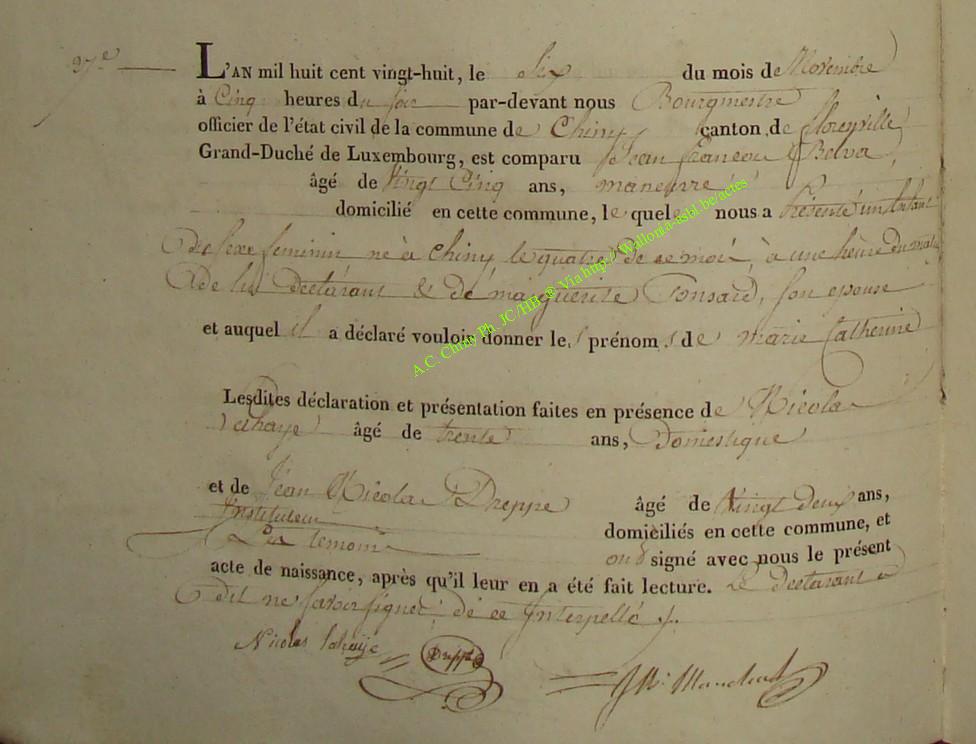 37e
L'AN mil huit cent vingt-huit, le Six du mois de Novembre
à Cinq heures du soir par-devant nous Bourgmestre
officier de l'état civil de la commune de Chiny canton de florenville
Grand-Duché de Luxembourg, est comparu Jean francou Belva
âgé de Vingt Cinq ans, maneuvré
domicilié en cette commune, lequel nous a Présenté un Enfant
Du Sexe feminin né à Chiny le quatre de ce moi, à une heure du matin
De lui Déctarant & de marguerite Ponsard, son epouse
et auquel il a déclaré vouloir donner les prénoms de marie Catherine
Lesdites déclaration et présentation faites en présence de Nicola
Lahaye âgé de trente ans, Domestique
et de Jean Nicola Dreppe âgé de Vingt deux ans,
Instituteur domiciliés en cette commune, et
temoin ont signé avec nous le présent
acte de naissance, après qu'il leur en a été fait lecture. Le Dectarant a
dit ne savoir signer, de ce Interpellé
Nicolas Lahaije
Dreppe
A.C. Chiny Ph. JC/HB @ Via http://Wallonia-asbl.be/actes